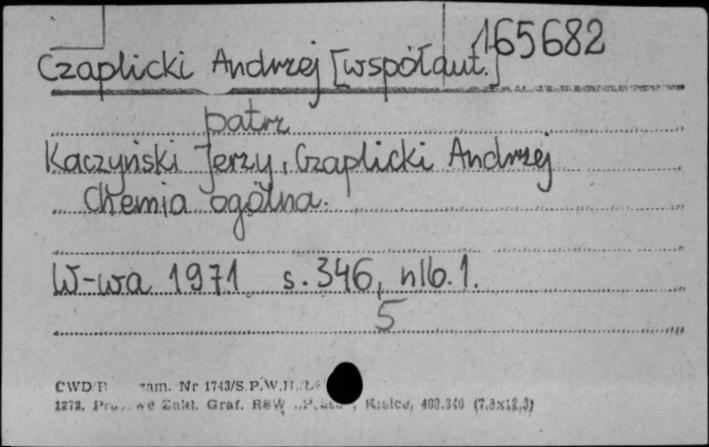 165682
Czaplicki Andrzej [współaut.]
patrz
Kaczyński Jerzy, Czaplicki Andrzej
Chemia ogólna.
W-wa 1971 s. 346, nlb. 1.
5
CWD zam. Nr 1743/S.P.W.H.
1272. Zakł. Graf. RSW Kielce, (7,5x12,5)